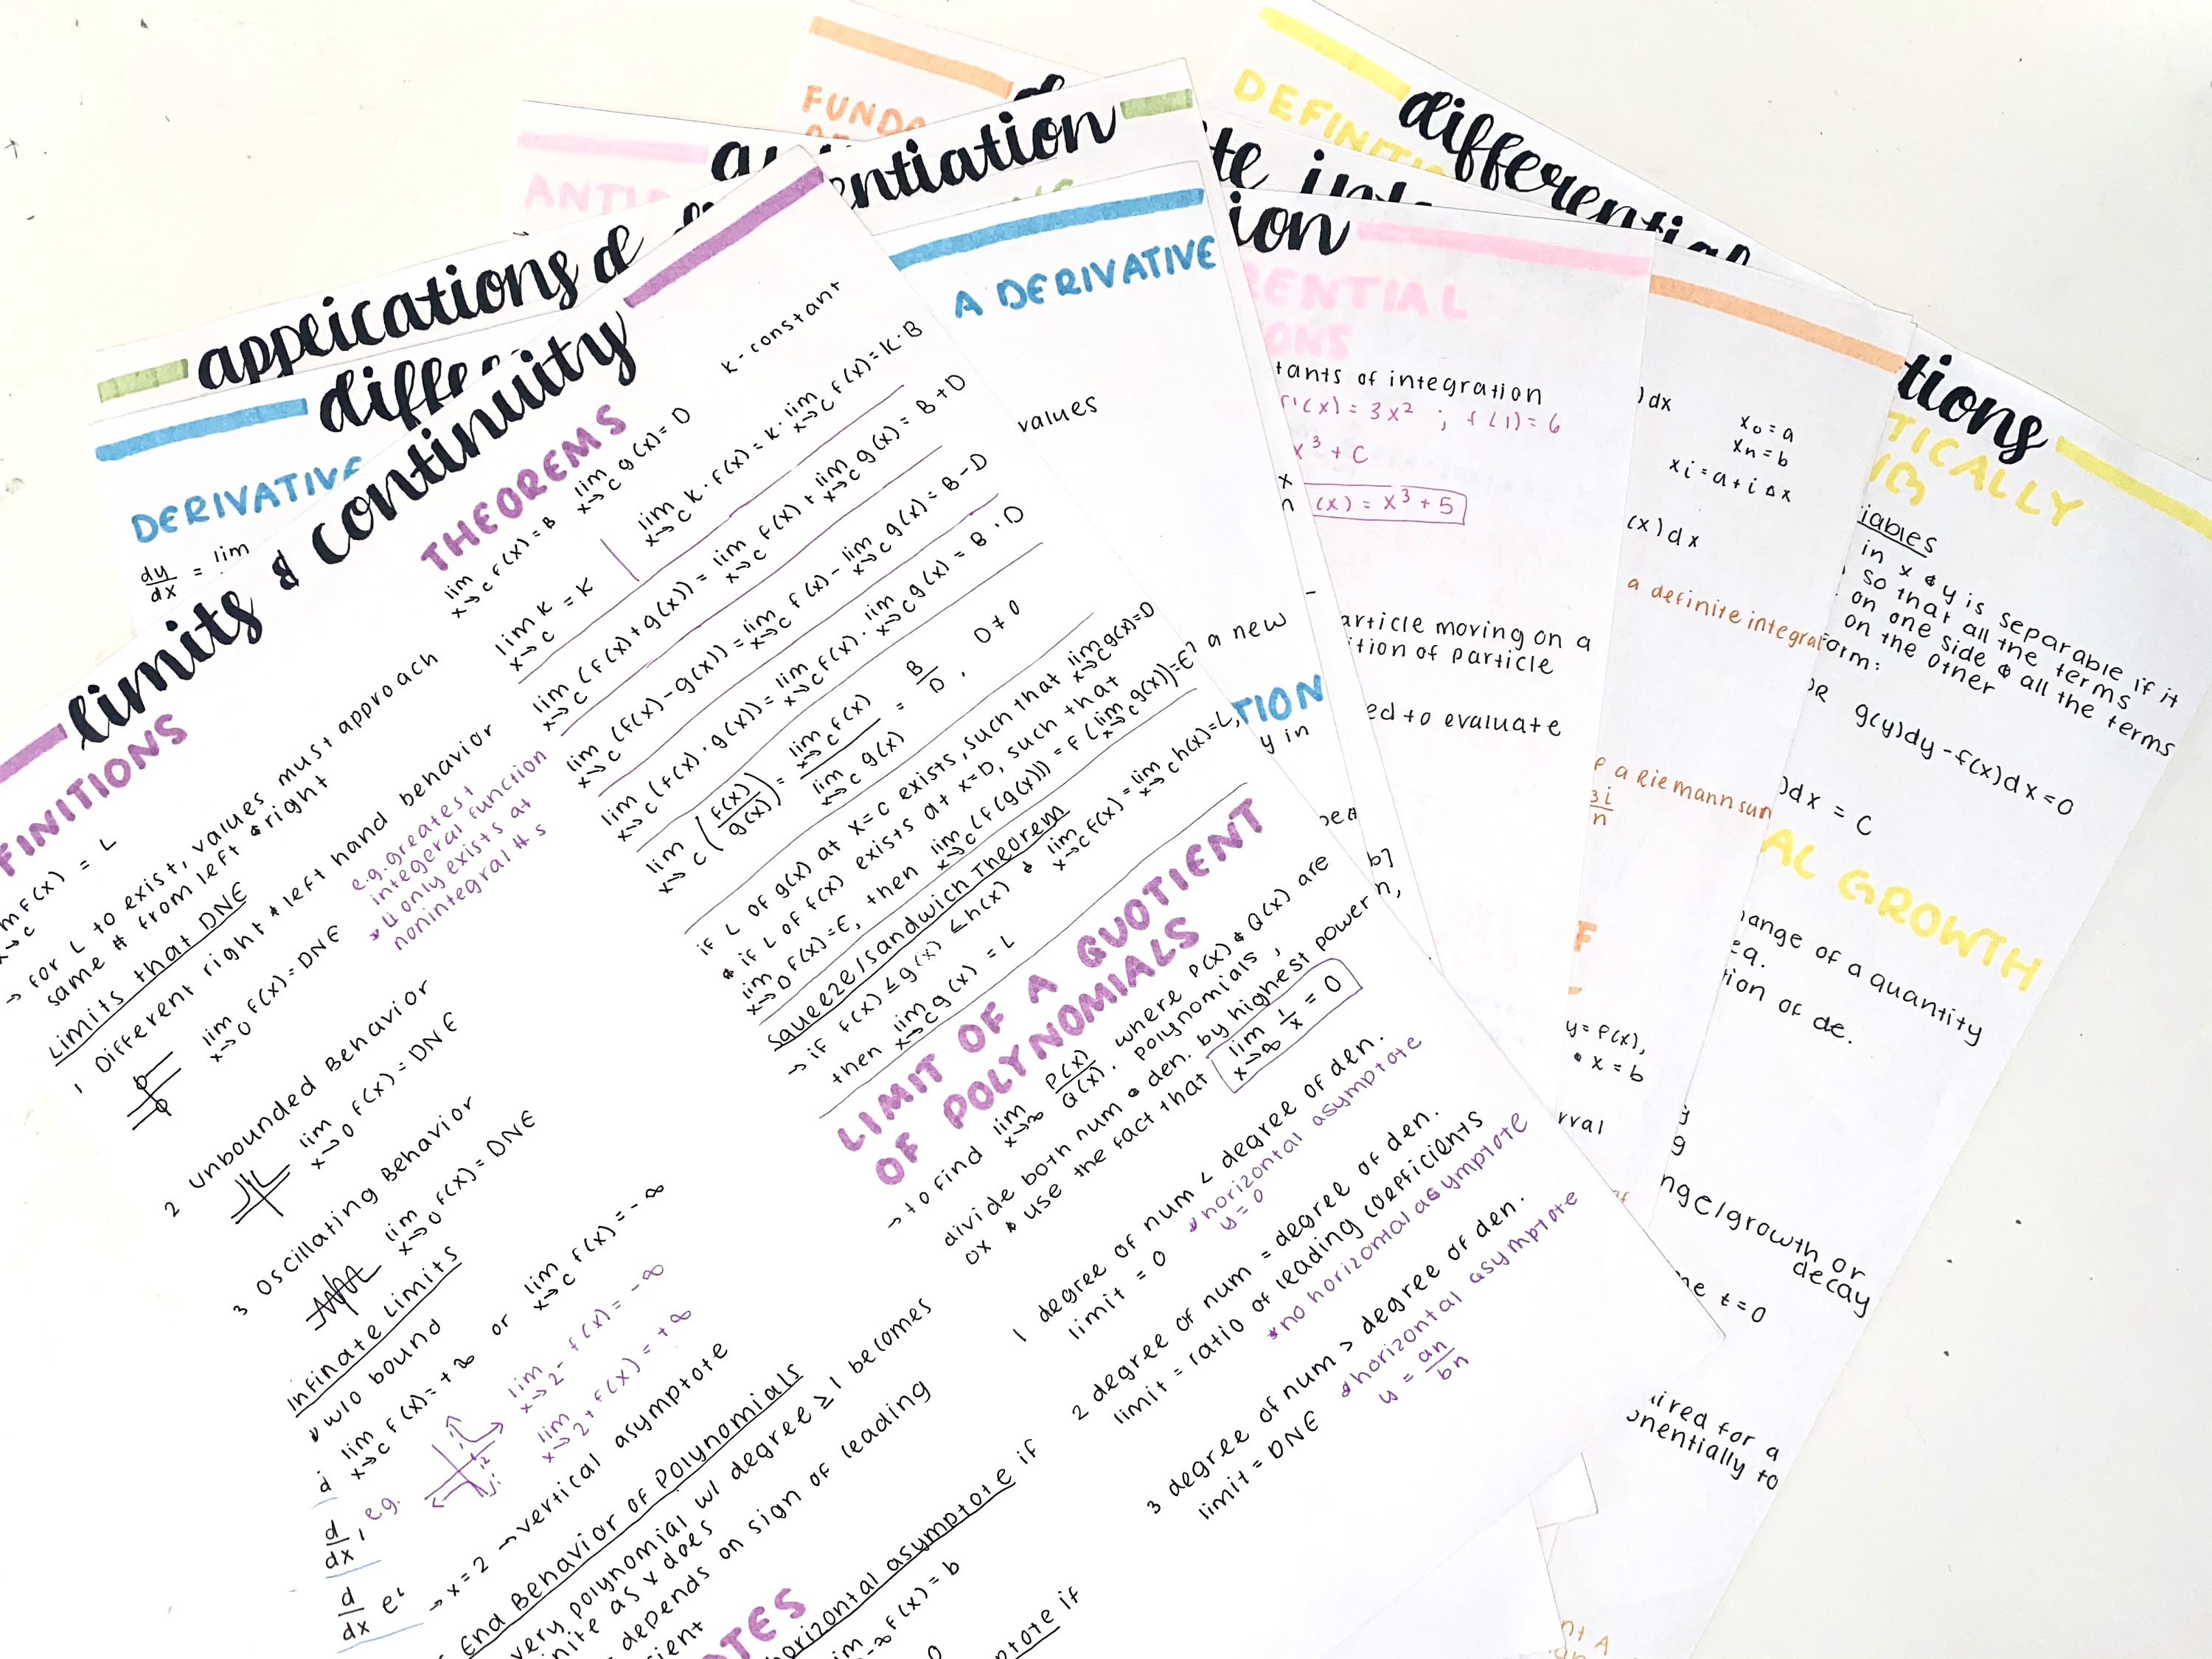 limits & continuity
FINITIONS
m f(x) = L
x→c
→ for L to exist, values must approach
same # from left & right
Limits that DNE
1 Different right & left hand behavior
lim f(x) = DNE
x→0
e.g. greatest
integeral function
↳ L only exists at
nonintegral #s
2 unbounded Behavior
lim f(x) = DNE
x→0
3 Oscillating Behavior
lim f(x) = DNE
x→0
Infinate Limits
↳ w/o bound
lim f(x) = +∞ or lim f(x) = -∞
x→c x→c
e.g.
lim f(x) = -∞
x→2-
lim f(x) = +∞
x→2+
→ x=2 → vertical asymptote
End Behavior of Polynomials
very polynomial w/ degree ≥ 1 becomes
nite as x does
depends on sign of leading
cient
THEOREMS
k - constant
lim f(x) = B lim g(x) = D
x→c x→c
lim k = k
x→c
lim k · f(x) = k · lim f(x) = k · B
x→c x→c
lim (f(x) + g(x)) = lim f(x) + lim g(x) = B + D
x→c x→c x→c
lim (f(x) - g(x)) = lim f(x) - lim g(x) = B - D
x→c x→c x→c
lim (f(x) · g(x)) = lim f(x) · lim g(x) = B · D
x→c x→c x→c
lim (f(x)/g(x)) = lim f(x) / lim g(x) = B/D, D ≠ 0
x→c x→c x→c
if L of g(x) at x=c exists, such that lim g(x)=D
x→c
& if L of f(x) exists at x=D, such that
lim f(x)=E, then lim (f(g(x))) = f(lim g(x))=E
x→D x→c x→c
Squeeze/sandwich Theorem
→ if f(x) ≤ g(x) ≤ h(x) & lim f(x) = lim h(x)=L,
x→c x→c
then lim g(x) = L
x→c
LIMIT OF A QUOTIENT
OF POLYNOMIALS
→ to find lim P(x)/Q(x), where P(x) & Q(x) are
x→∞
polynomials,
divide both num & den. by highest power
ox & use the fact that lim 1/x = 0
x→∞
1 degree of num < degree of den.
limit = 0
↳ horizontal asymptote
y=0
2 degree of num = degree of den.
limit = ratio of leading coefficients
↳ no horizontal asymptote
3 degree of num > degree of den.
limit = DNE
↳ horizontal asymptote
y = an/bn
TES
horizontal asymptote if
lim f(x) = b
→-∞
ptote if
diffe
DERIVATIVE
dy/dx = lim
A DERIVATIVE
values
a new
TION
y in
d
d/dx
d/dx e
appeications
entiation
ANTI
ion
ENTIAL
ONS
tants of integration
f'(x) = 3x² ; f(1)=6
x³ + C
(x) = x³ + 5
article moving on a
ition of particle
ed to evaluate
FUNDA
te int
) dx
x0 = a
xn = b
xi = a + i Δx
(x) dx
a definite integral
f a Riemann sum
3i/n
F
y = f(x),
& x = b
rval
DEFINITIO
differential
tions
TICALLY
iables
in x & y is separable if it
so that all the terms
on one side & all the terms
on the other
form:
OR g(y)dy - f(x)dx = 0
)dx = C
AL GROWTH
hange of a quantity
eq.
tion of de.
nge/growth or
decay
me t=0
ired for a
onentially to